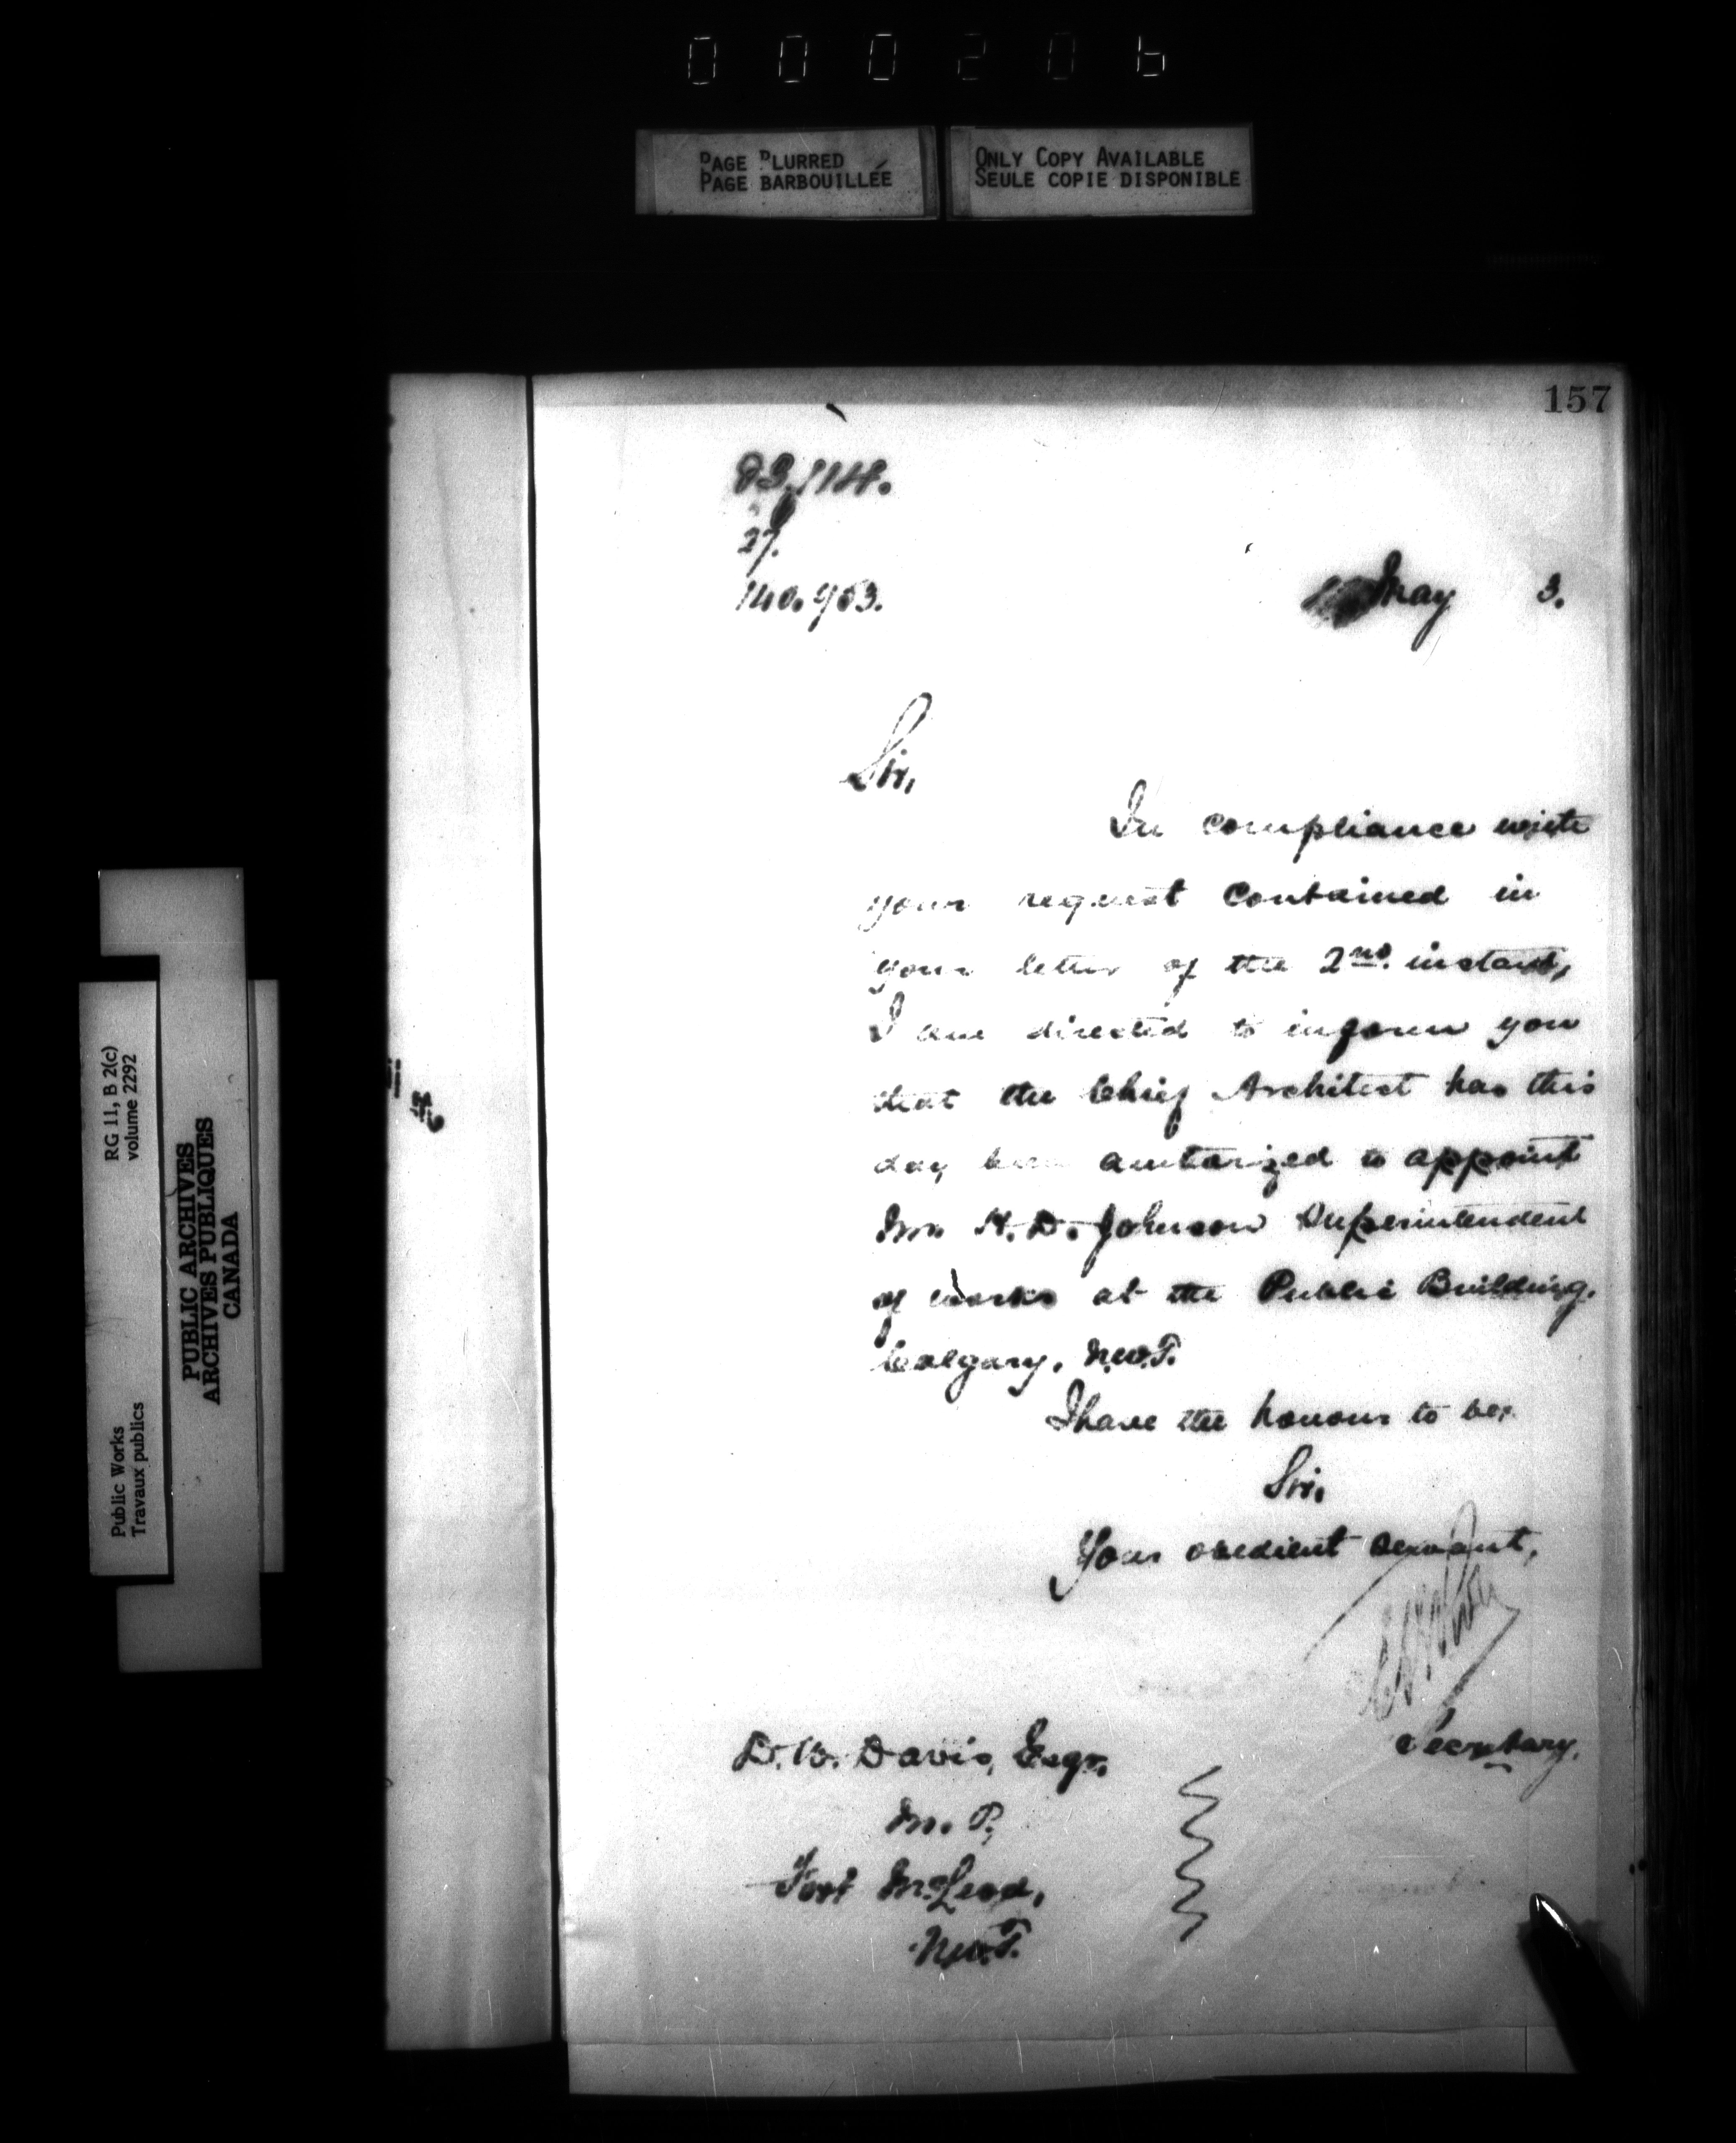 000206
PAGE BLURRED
PAGE BARBOUILLÉE
ONLY COPY AVAILABLE
SEULE COPIE DISPONIBLE
157
27.
140.953.
May 3.
Sir,
In compliance with
your request contained in
your letter of the 2nd. instant,
I am directed to inform you
that the Chief Architect has this
day been authorized to appoint
Mr. H. D. Johnson Superintendent
of works at the Public Building.
Calgary, N.W.T.
I have the honour to be,
Sir,
Your obedient servant,
Secretary.
D. W. Davis, Esqr.
M. P.,
Fort McLeod,
N.W.T.
RG 11, B 2(c)
volume 2292
PUBLIC ARCHIVES
ARCHIVES PUBLIQUES
CANADA
Public Works
Travaux publics